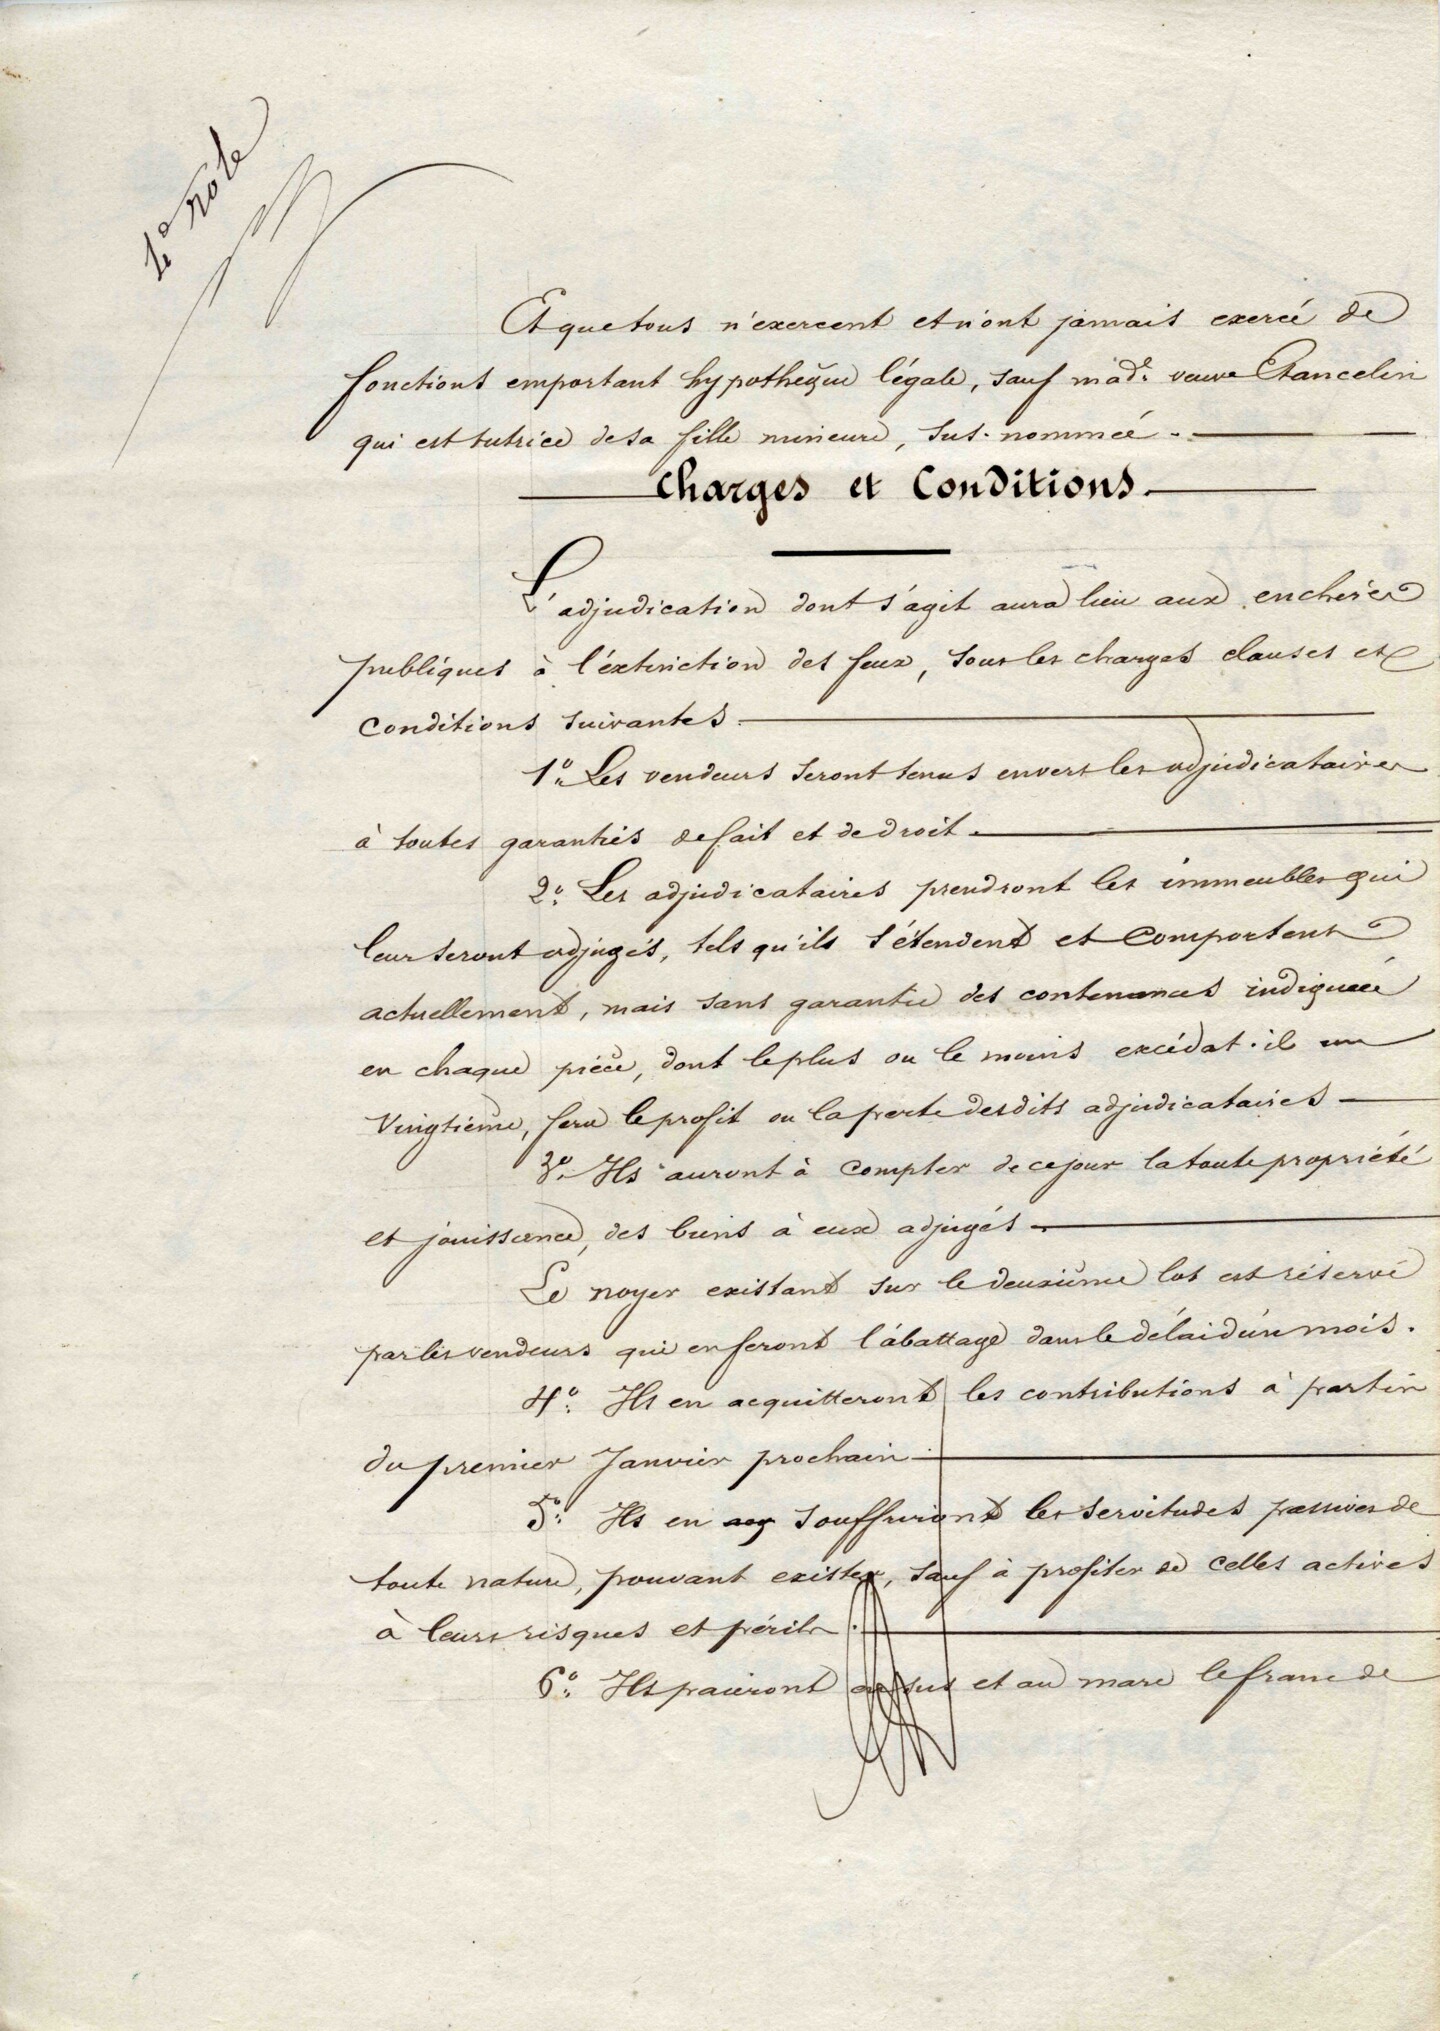 4e rôle
Et que tous n'exercent et n'ont jamais exercé de
fonctions emportant hypothèque légale, sauf made veuve Chancelin
qui est tutrice de sa fille mineure, sus-nommée.
Charges et Conditions.
L'adjudication dont s'agit aura lieu aux enchères
publiques à l'éxtinction des feux, sous les charges clauses et
conditions suivantes
1o. Les vendeurs seront tenus envers les adjudicataires
à toutes garanties de fait et de droit.
2o. Les adjudicataires prendront les immeubles qui
leur seront adjugés, tels qu'ils s'étendent et comportent
actuellement, mais sans garantie des contenances indiquées
en chaque pièce, dont le plus ou le moins excédat-il un
vingtième, fera le profit ou la perte desdits adjudicataires
3o. Ils auront à compter de ce jour la toute propriété
et jouissance, des biens à eux adjugés
Le noyer existant sur le deuxième lot est réservé
par les vendeurs qui en feront l'abattage dans le délai d'un mois.
4o. Ils en acquitteront les contributions à partir
du premier Janvier prochain.
5o. Ils en souffriront les servitudes passives de
toute nature, pouvant exister, sauf à profiter de celles actives
à leurs risques et périls.
6o. Ils paieront en sus et au marc le franc de